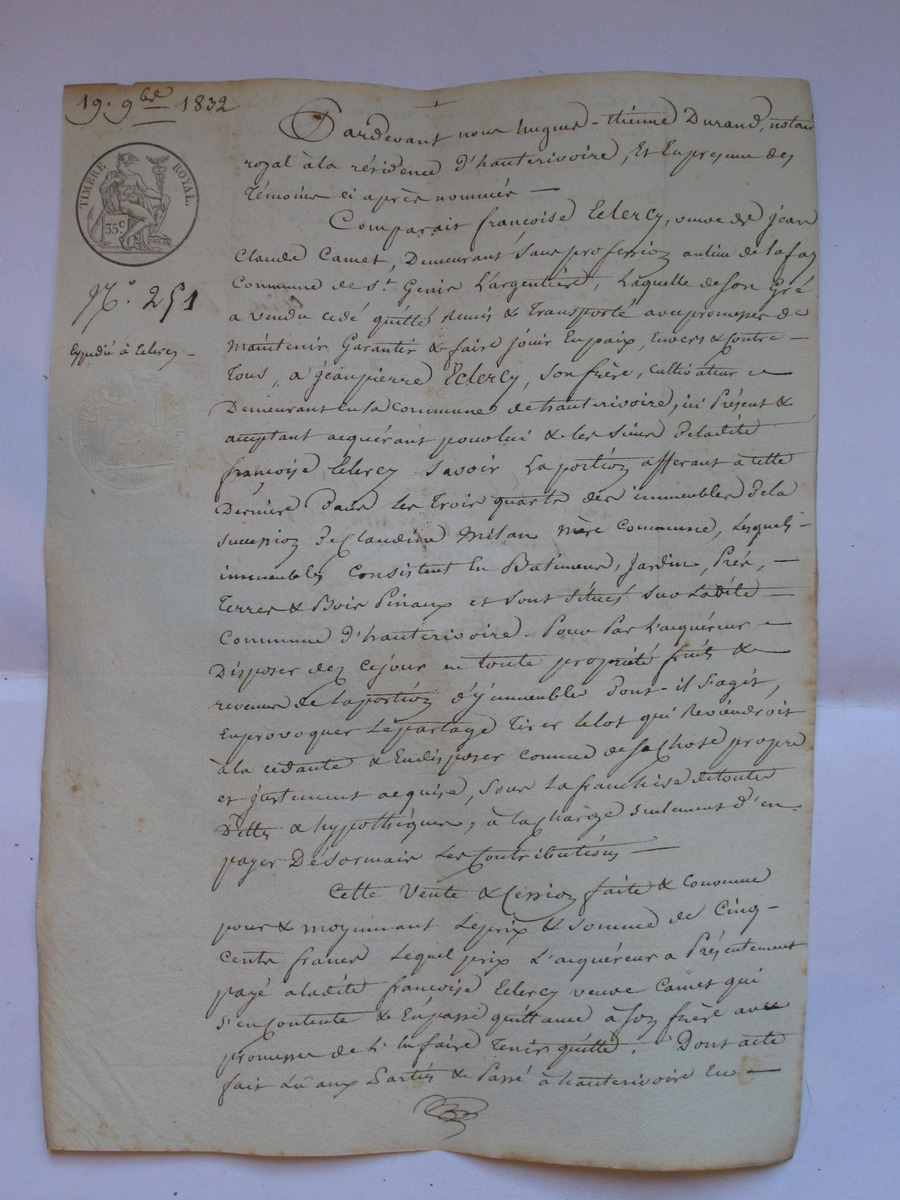 19. 9bre 1832
TIMBRE ROYAL.
35c
N.° 251
Expédié à Eclercy
Pardevant nous hugues-etienne Durand, notaire
royal à la résidence d'hauterivoire, et en presence des
témoins ci après nommés —
Comparait françoise Eclercy, veuve de jean
Claude Camet, Demeurant sans profession au lieu de lafay
Commune de st. Genis L'argentière, Laquelle de son Gré
a vendu cédé quitté remis & transporté avec promesse de
maintenir Garantir & faire jouir en paix, envers & contre —
tous, a jean pierre Eclercy, son frère, cultivateur
Demeurant en sa commune de hauterivoire, ici Présent &
acceptant acquérant pour lui & les siens de ladite
françoise Eclercy savoir La portion afferant à cette
Dernière Dans les trois quarts des immeubles de la
succession de Claudine Milan mère commune, lesquels —
immeubles consistent en Batimens, jardin, Prés, —
terres & Bois Pinaux et sont situés sur Ladite —
Commune d'hauterivoire. Pour Par L'acquéreur —
Disposer dez ce jour en toute propriété fruits &
revenus de la portion d'immeuble dont-il s'agit,
en provoquer le partage tirer le lot qui reviendroit
à la cédante & en disposer comme de sa chose propre
et justement acquise, sous la franchise de toutes
Dettes & hypothèques, à la charge seulement d'en
payer Désormais les Contributions —
Cette Vente & Cession faite & convenue
pour & moyennant le prix & somme de Cinq —
Cents francs Lequel prix L'acquéreur a Présentement
payé a ladite françoise Eclercy veuve Camet qui
s'en contente & en passe quittance à son frère avec
promesse de l'en faire tenir quitte. Dont acte
fait Lû aux Parties & Passé à hauterivoire En —